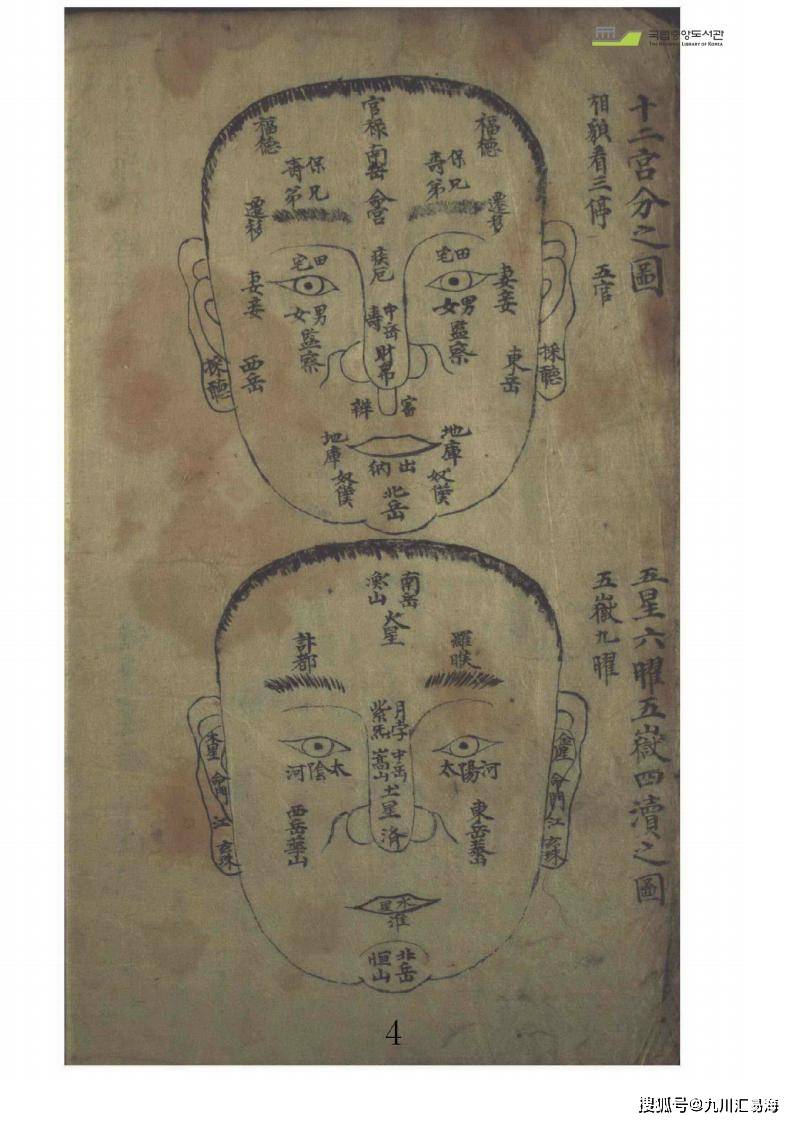 국립중앙도서관
THE NATIONAL LIBRARY OF KOREA
十二宮分之圖
相貌看三停 五官
官祿
南岳
命宮
福德
福德
保壽
兄弟
保壽
兄弟
遷移
遷移
疾厄
田宅
田宅
妻妾
妻妾
男女
男女
監察
監察
中岳
壽
財帛
東岳
西岳
採聽
採聽
審辨
地庫
地庫
出納
奴僕
奴僕
北岳
五星六曜五嶽四瀆之圖
五嶽九曜
南岳
衡山
火星
羅睺
計都
月孛
紫炁
中岳
嵩山
土星
濟
太陽河
太陰河
東岳泰山
西岳華山
金星 命門 江 玄珠
木星 命門 江 玄珠
水星
淮
北岳
恒山
4
搜狐号@九川汇易海